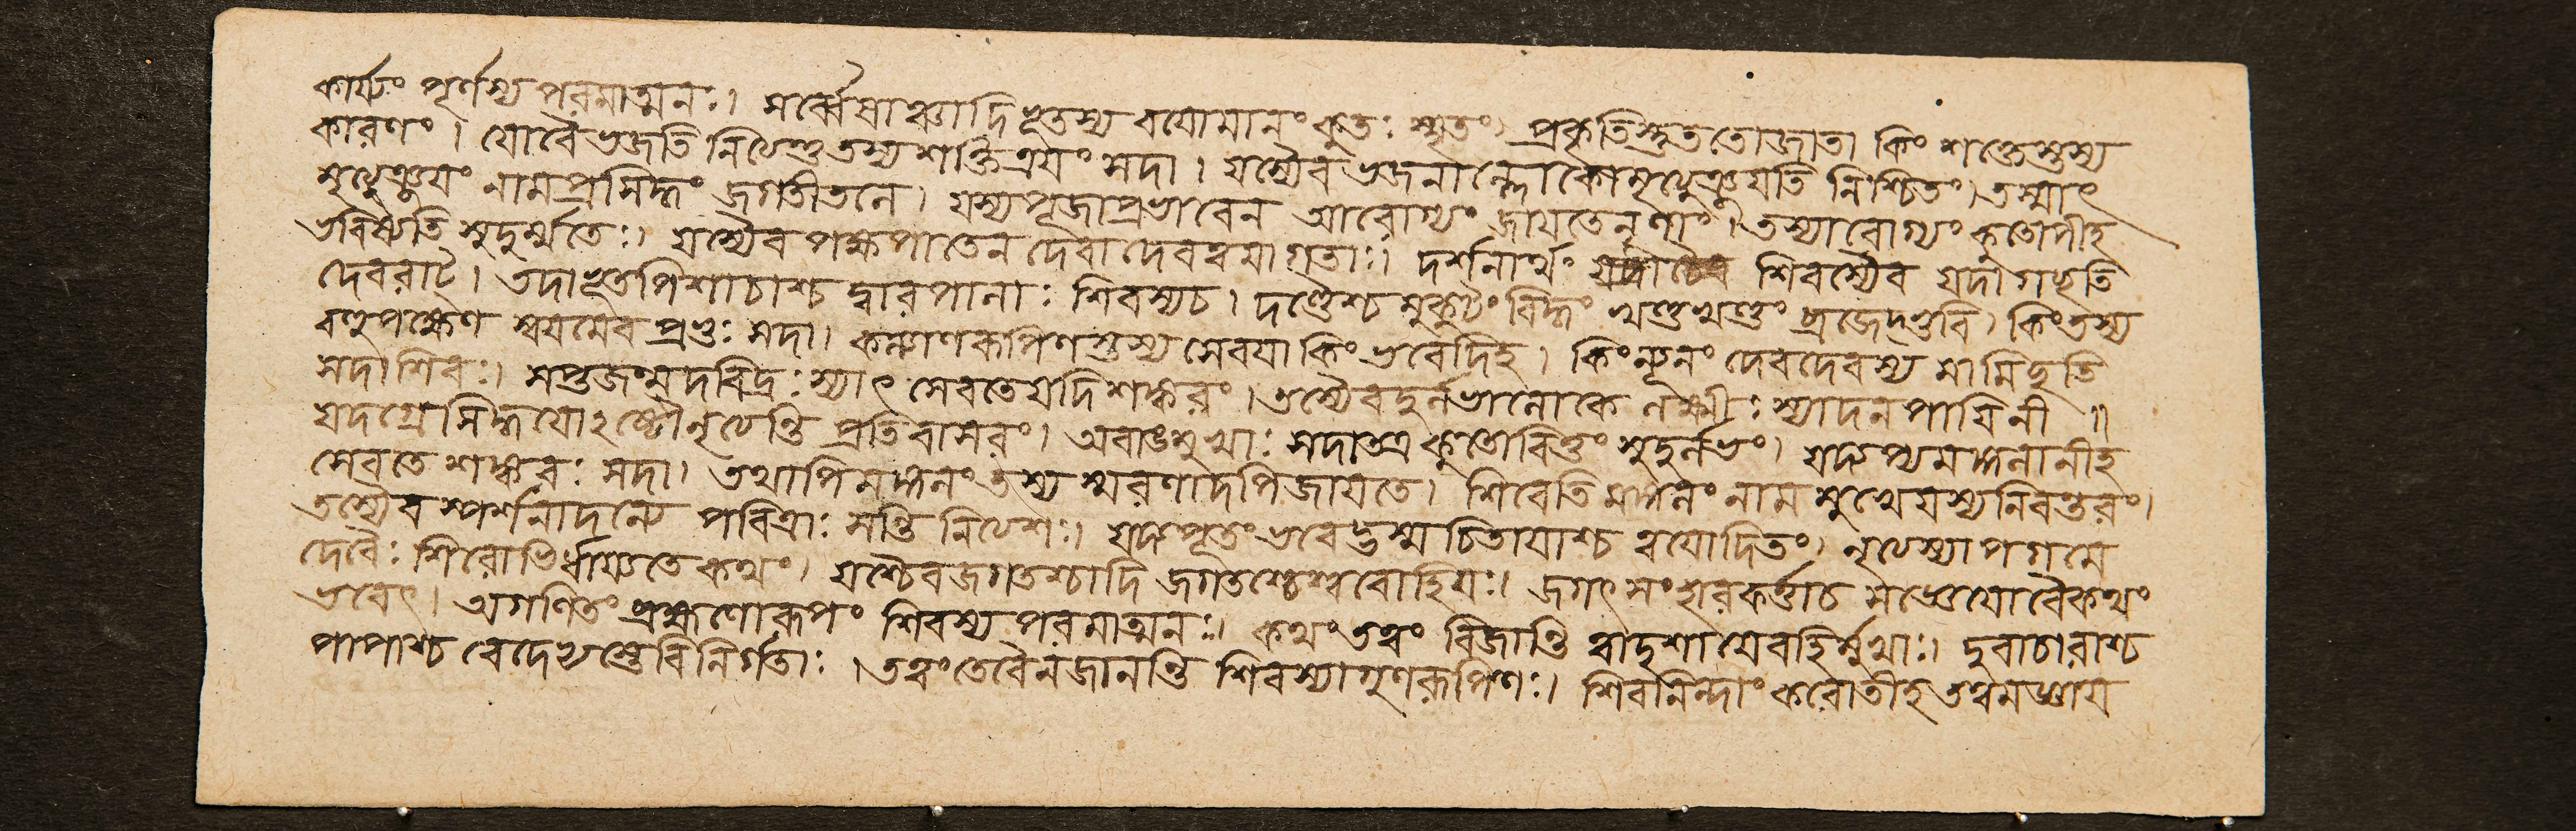 কার্য্যং পূর্ণস্য পরমাত্মনঃ। সর্ব্বেষাঞ্চাদিভূতস্য বয়োমানং কুতঃ স্মৃতং। প্রকৃতিস্তু ততোজাতা কিং শক্তেস্তস্য
কারণং। যোবৈ ভজতি নিত্যন্তু তস্য শক্তিত্রয়ং সদা। যস্যৈব ভজনাল্লোকো মৃত্যুঞ্জয়তি নিশ্চিতং। তস্মাৎ
মৃত্যুঞ্জয়ং নাম প্রসিদ্ধং জগতীতলে। যস্য পূজাপ্রভাবেন আরোগ্যং জায়তে নৃণাং। তস্যারোগ্যং কুতোপীহ
ভবিষ্যতি সুদুর্ম্মতেঃ। যস্যৈব পক্ষপাতেন দেবা দেবত্বমাগতাঃ। দর্শনার্থং শিবস্যৈব যদা গচ্ছতি
দেবরাট্। তদা ভূতপিশাচাশ্চ দ্বারপালাঃ শিবস্য চ। দণ্ডৈশ্চ মুকুটং বিদ্ধং খণ্ডখণ্ডং ব্রজেদ্ভুবি। কিং তস্য
বহুপক্ষেণ স্বয়মেব প্রভুঃ সদা। কল্যাণরূপিণস্তস্য সেবয়া কিং ভবেদিহ। কিং ন্যূনং দেবদেবস্য মামিচ্ছতি
সদাশিবঃ। সপ্তজন্মদরিদ্রঃ স্যাৎ সেবতে যদি শঙ্করং। তস্যৈব দুর্লভালোকে লক্ষ্মীঃ স্যাদনপায়িনী॥
যদগ্রে সিদ্ধয়োঽষ্টৌ নৃত্যন্তি প্রতিবাসরং। অবাঙমুখাঃ সদা তত্র কুতোবিত্তং সুদুর্লভং। যদ্যপ্যমঙ্গলানীহ
সেবতে শঙ্করঃ সদা। তথাপি মঙ্গলং তস্য স্মরণাদপি জায়তে। শিবেতি মঙ্গলং নাম মুখে যস্য নিরন্তরং।
তস্যৈব স্পর্শনাদন্যে পবিত্রাঃ সন্তি নিত্যশঃ। যদ্যপূতং ভবেদ্ভস্ম চিতায়াশ্চ ত্বয়োদিতং। নৃত্যস্যাপগমে
দেবৈঃ শিরোভির্ধার্য্যতে কথং। যশ্চৈব জগতশ্চাদি জগতশ্চেশ্বরোহি যঃ। জগৎসংহারকর্ত্তা চ মধ্যে যো বৈ কথং
ভবেৎ। অগণিতং ব্রহ্মণোরূপং শিবস্য পরমাত্মনঃ। কথং তত্বং বিজানন্তি ত্বাদৃশা যে বহির্মুখাঃ। দুরাচারাশ্চ
পাপাশ্চ বিনির্গতাঃ। তত্বং তে বৈ ন জানন্তি শিবস্যাগুণরূপিণঃ। শিবনিন্দাং করোতীহ তত্বমজ্ঞায়